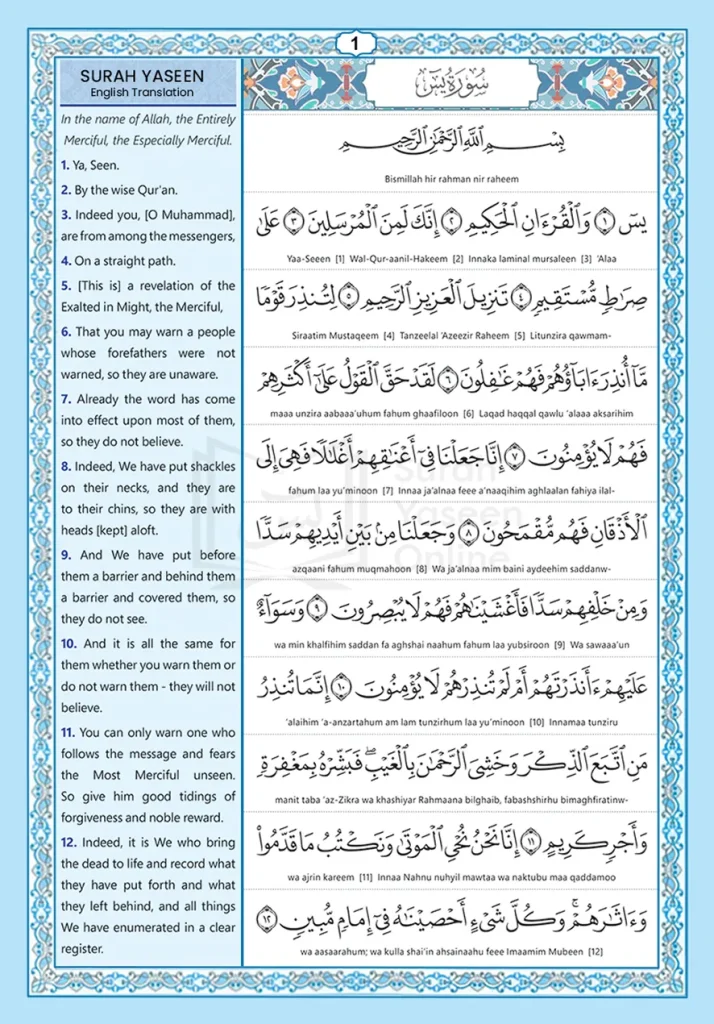 1
SURAH YASEEN
English Translation
In the name of Allah, the Entirely
Merciful, the Especially Merciful.
1. Ya, Seen.
2. By the wise Qur'an.
3. Indeed you, [O Muhammad],
are from among the messengers,
4. On a straight path.
5. [This is] a revelation of the
Exalted in Might, the Merciful,
6. That you may warn a people
whose forefathers were not
warned, so they are unaware.
7. Already the word has come
into effect upon most of them,
so they do not believe.
8. Indeed, We have put shackles
on their necks, and they are
to their chins, so they are with
heads [kept] aloft.
9. And We have put before
them a barrier and behind them
a barrier and covered them, so
they do not see.
10. And it is all the same for
them whether you warn them or
do not warn them - they will not
believe.
11. You can only warn one who
follows the message and fears
the Most Merciful unseen.
So give him good tidings of
forgiveness and noble reward.
12. Indeed, it is We who bring
the dead to life and record what
they have put forth and what
they left behind, and all things
We have enumerated in a clear
register.
سُورَةُ يسٓ
بِسْمِ اللَّهِ الرَّحْمَٰنِ الرَّحِيمِ
Bismillah hir rahman nir raheem
يسٓ ١ وَالْقُرْءَانِ الْحَكِيمِ ٢ إِنَّكَ لَمِنَ الْمُرْسَلِينَ ٣ عَلَىٰ
Yaa-Seeen [1] Wal-Qur-aanil-Hakeem [2] Innaka laminal mursaleen [3] 'Alaa
صِرَاطٍ مُّسْتَقِيمٍ ٤ تَنزِيلَ الْعَزِيزِ الرَّحِيمِ ٥ لِتُنذِرَ قَوْمًا
Siraatim Mustaqeem [4] Tanzeelal 'Azeezir Raheem [5] Litunzira qawmam-
مَّا أُنذِرَ ءَابَاؤُهُمْ فَهُمْ غَافِلُونَ ٦ لَقَدْ حَقَّ الْقَوْلُ عَلَىٰ أَكْثَرِهِمْ
maaa unzira aabaaa'uhum fahum ghaafiloon [6] Laqad haqqal qawlu 'alaaa aksarihim
فَهُمْ لَا يُؤْمِنُونَ ٧ إِنَّا جَعَلْنَا فِي أَعْنَاقِهِمْ أَغْلَالًا فَهِيَ إِلَى
fahum laa yu'minoon [7] Innaa ja'alnaa feee a'naaqihim aghlaalan fahiya ilal-
الْأَذْقَانِ فَهُم مُّقْمَحُونَ ٨ وَجَعَلْنَا مِنۢ بَيْنِ أَيْدِيهِمْ سَدًّا
azqaani fahum muqmahoon [8] Wa ja'alnaa mim baini aydeehim saddanw-
وَمِنْ خَلْفِهِمْ سَدًّا فَأَغْشَيْنَاهُمْ فَهُمْ لَا يُبْصِرُونَ ٩ وَسَوَاءٌ
wa min khalfihim saddan fa aghshai naahum fahum laa yubsiroon [9] Wa sawaaa'un
عَلَيْهِمْ ءَأَنذَرْتَهُمْ أَمْ لَمْ تُنذِرْهُمْ لَا يُؤْمِنُونَ ١٠ إِنَّمَا تُنذِرُ
'alaihim 'a-anzartahum am lam tunzirhum laa yu'minoon [10] Innamaa tunziru
مَنِ اتَّبَعَ الذِّكْرَ وَخَشِيَ الرَّحْمَٰنَ بِالْغَيْبِ ۖ فَبَشِّرْهُ بِمَغْفِرَةٍ
manit taba 'az-Zikra wa khashiyar Rahmaana bilghaib, fabashshirhu bimaghfiratinw-
وَأَجْرٍ كَرِيمٍ ١١ إِنَّا نَحْنُ نُحْيِ الْمَوْتَىٰ وَنَكْتُبُ مَا قَدَّمُوا۟
wa ajrin kareem [11] Innaa Nahnu nuhyil mawtaa wa naktubu maa qaddamoo
وَءَاثَارَهُمْ ۚ وَكُلَّ شَيْءٍ أَحْصَيْنَاهُ فِي إِمَامٍ مُّبِينٍ ١٢
wa aasaarahum; wa kulla shai'in ahsainaahu feee Imaamim Mubeen [12]
Surah
Yaseen
Online